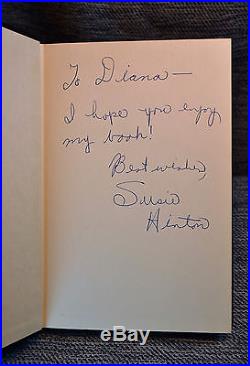 To Diana—
I hope you enjoy
my book!
Best wishes,
Susie
Hinton
DV-photo.com